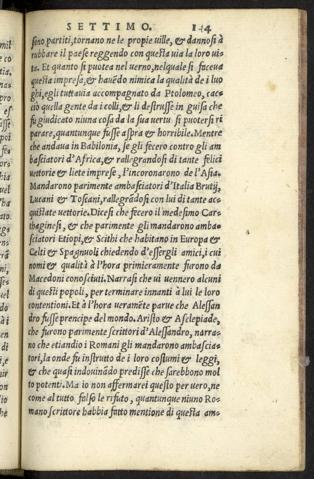 SETTIMO. 124
sino partiti, tornano ne le propie uille, & dannosi à
rubbare il paese reggendo con questa uia la loro ui-
ta. Et quanto si puotea nel uerno, nelquale si faceua
questa impresa, & hauẽdo nimica la qualità de i luo
ghi, egli tuttauia accompagnato da Ptolomeo, cac
ciò quella gente da i colli, & li destrusse in guisa che
fu giudicato niuna cosa da la sua uertu si potersi ri
parare, quantunque fusse aspra & horribile. Mentre
che andaua in Babilonia, se gli fecero contro gli am
basciatori d'Africa, & rallegrandosi di tante felici
uettorie & liete imprese, l'incoronarono de l'Asia.
Mandarono parimente ambasciatori d'Italia Brutij,
Lucani & Toscani, rallegrãdosi con lui di tante ac-
quistate uettorie. Dicesi che fecero il medesimo Car-
thaginesi, & che parimente gli mandarono amba-
sciatori Etiopi, & Scithi che habitano in Europa &
Celti & Spagnuoli chiedendo d'essergli amici, i cui
nomi & qualità à l'hora primieramente furono da
Macedoni conosciuti. Narrasi che ui uennero alcuni
di questi popoli, per terminare innanti à lui le loro
contentioni. Et à l'hora ueramẽte parue che Alessan
dro fusse prencipe del mondo. Aristo & Asclepiade,
che furono parimente scrittori d'Alessandro, narra-
no che etiandio i Romani gli mandarono ambascia-
tori, la onde fu instrutto de i loro costumi & leggi,
& che quasi indouinãdo predisse che sarebbono mol
to potenti. Ma io non affermarei questo per uero, ne
come al tutto falso le rifuto, quantunque niuno Ro-
mano scrittore habbia fatto mentione di questa am-